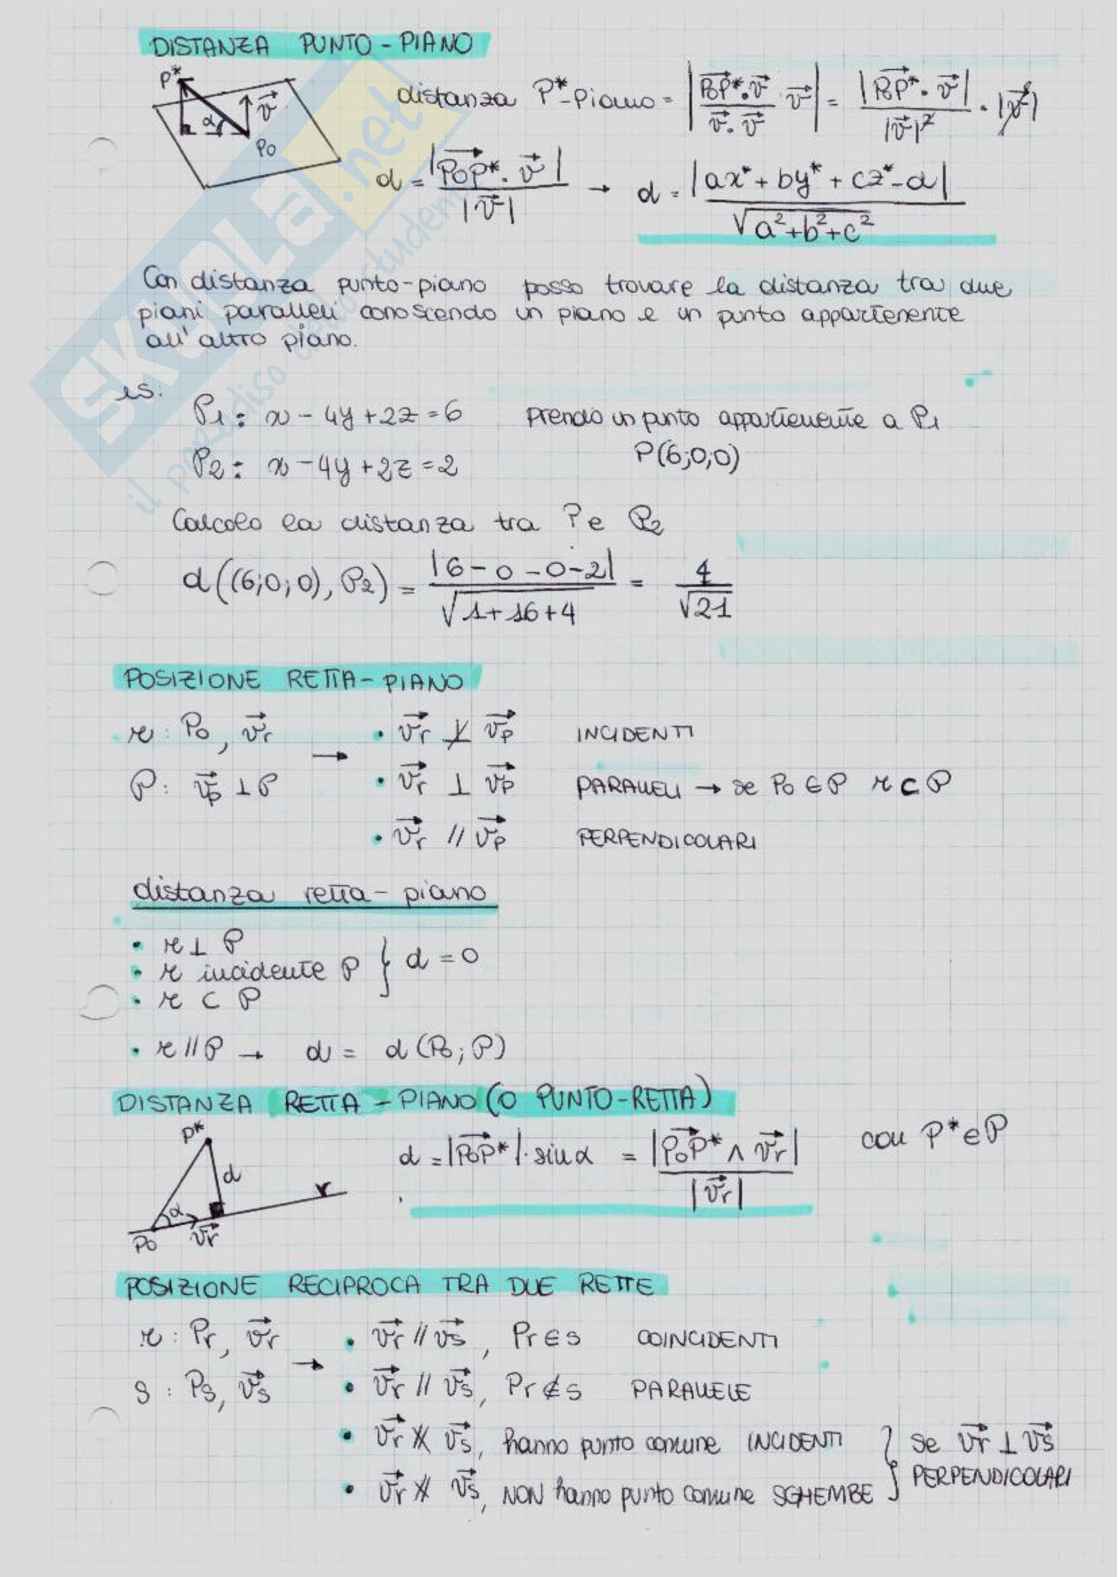 DISTANZA PUNTO-PIANO
P*
α
v⃗
P0
distanza P*-Piano = |P0P*⃗ · v⃗ / v⃗ · v⃗ · v⃗| = |P0P*⃗ · v⃗| / |v⃗|² · |v⃗|
d = |P0P*⃗ · v⃗| / |v⃗| → d = |ax* + by* + cz* - d| / √a²+b²+c²
Con distanza punto-piano posso trovare la distanza tra due
piani paralleli conoscendo un piano e un punto appartenente
all'altro piano.
es:
P1: x - 4y + 2z = 6 prendo un punto appartenente a P1
P2: x - 4y + 2z = 2 P(6;0;0)
Calcolo la distanza tra P e P2
d((6;0;0), P2) = |6 - 0 - 0 - 2| / √1+16+4 = 4 / √21
POSIZIONE RETTA-PIANO
r: P0, vr⃗ → • vr⃗ ⊥̸ vp⃗ INCIDENTI
P: vp⃗ ⊥ P • vr⃗ ⊥ vp⃗ PARALLELI → se P0 ∈ P r ⊂ P
• vr⃗ // vp⃗ PERPENDICOLARI
distanza retta-piano
• r ⊥ P
• r incidente P } d = 0
• r ⊂ P
• r // P → d = d(P0; P)
DISTANZA RETTA-PIANO (O PUNTO-RETTA)
P*
d
r
α
P0
vr⃗
d = |P0P*⃗| · sin α = |P0P*⃗ ∧ vr⃗| / |vr⃗| con P* ∈ P
POSIZIONE RECIPROCA TRA DUE RETTE
r: Pr, vr⃗ → • vr⃗ // vs⃗, Pr ∈ s COINCIDENTI
s: Ps, vs⃗ • vr⃗ // vs⃗, Pr ∉ s PARALLELE
• vr⃗ ∦ vs⃗, hanno punto comune INCIDENTI } se vr⃗ ⊥ vs⃗
• vr⃗ ∦ vs⃗, NON hanno punto comune SGHEMBE } PERPENDICOLARI
SKUOLA.net
il paradiso dello studente